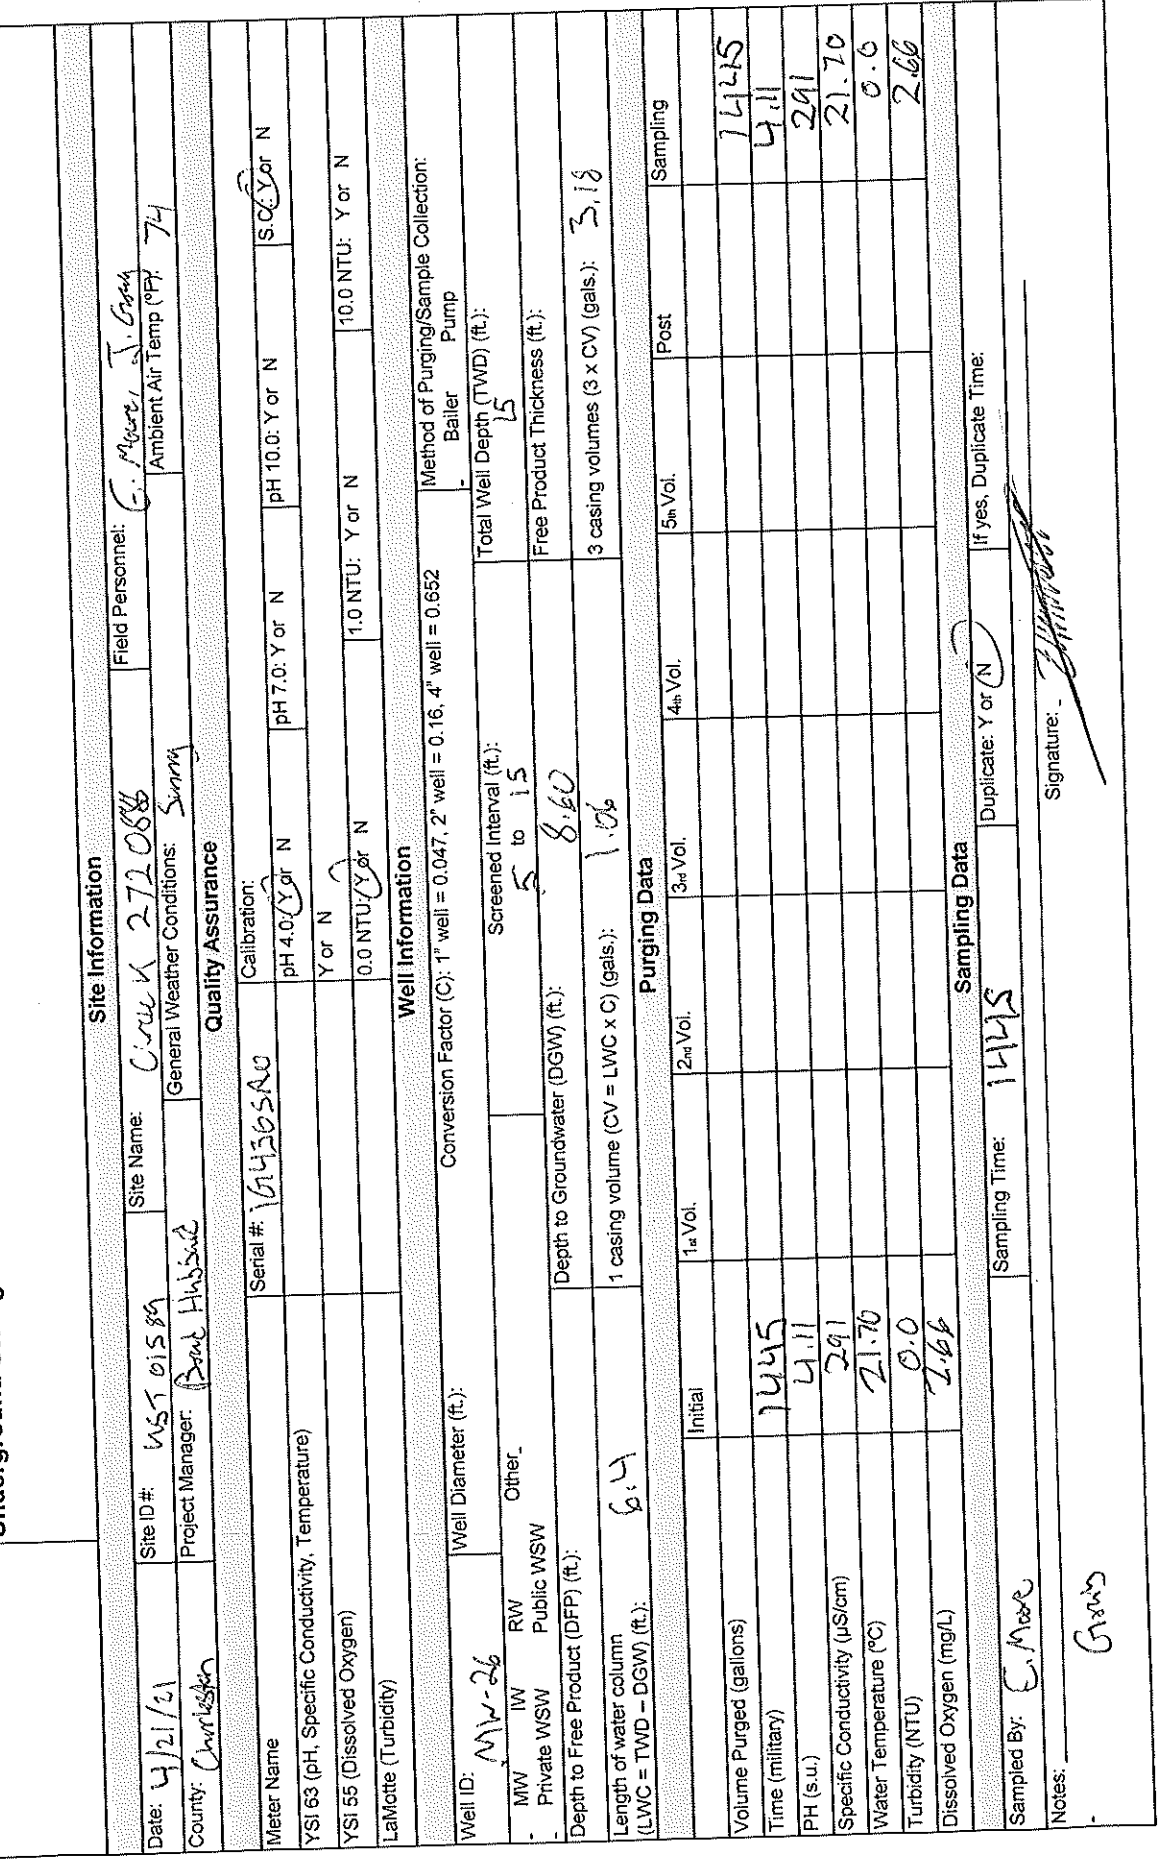 Site Information
Date: 4/21/21 Site ID#: UST 01589 Site Name: Circle K 2720886 Field Personnel: E. Moore, J. Gray
County: Charleston Project Manager: General Weather Conditions: Sunny Ambient Air Temp (°F): 74
Quality Assurance
Meter Name Serial #: 16H36SRO Calibration:
YSI 63 (pH, Specific Conductivity, Temperature) pH 4.0: Y or N pH 7.0: Y or N pH 10.0: Y or N S.C.: Y or N
YSI 55 (Dissolved Oxygen) Y or N
LaMotte (Turbidity) 0.0 NTU: Y or N 1.0 NTU: Y or N 10.0 NTU: Y or N
Well Information
Well ID: MW-26 Well Diameter (ft.): Conversion Factor (C): 1" well = 0.047, 2" well = 0.16, 4" well = 0.652 Method of Purging/Sample Collection:
- Bailer Pump
- MW IW RW Other_ Screened Interval (ft.): Total Well Depth (TWD) (ft.):
Private WSW Public WSW 5 to 15 15
Depth to Free Product (DFP) (ft.): Depth to Groundwater (DGW) (ft.): 8.60 Free Product Thickness (ft.):
Length of water column
(LWC = TWD – DGW) (ft.): 6.4 1 casing volume (CV = LWC x C) (gals.): 1.06 3 casing volumes (3 x CV) (gals.): 3.18
Purging Data
Initial 1st Vol. 2nd Vol. 3rd Vol. 4th Vol. 5th Vol. Post Sampling
Volume Purged (gallons) 1445
Time (military) 1445 4.11
PH (s.u.) 4.11 291
Specific Conductivity (µS/cm) 291 21.70
Water Temperature (°C) 21.70 0.0
Turbidity (NTU) 0.0 2.66
Dissolved Oxygen (mg/L) 2.66
Sampling Data
Sampled By: E. Moore Sampling Time: 1445 Duplicate: Y or N If yes, Duplicate Time:
Notes: Signature: _
-